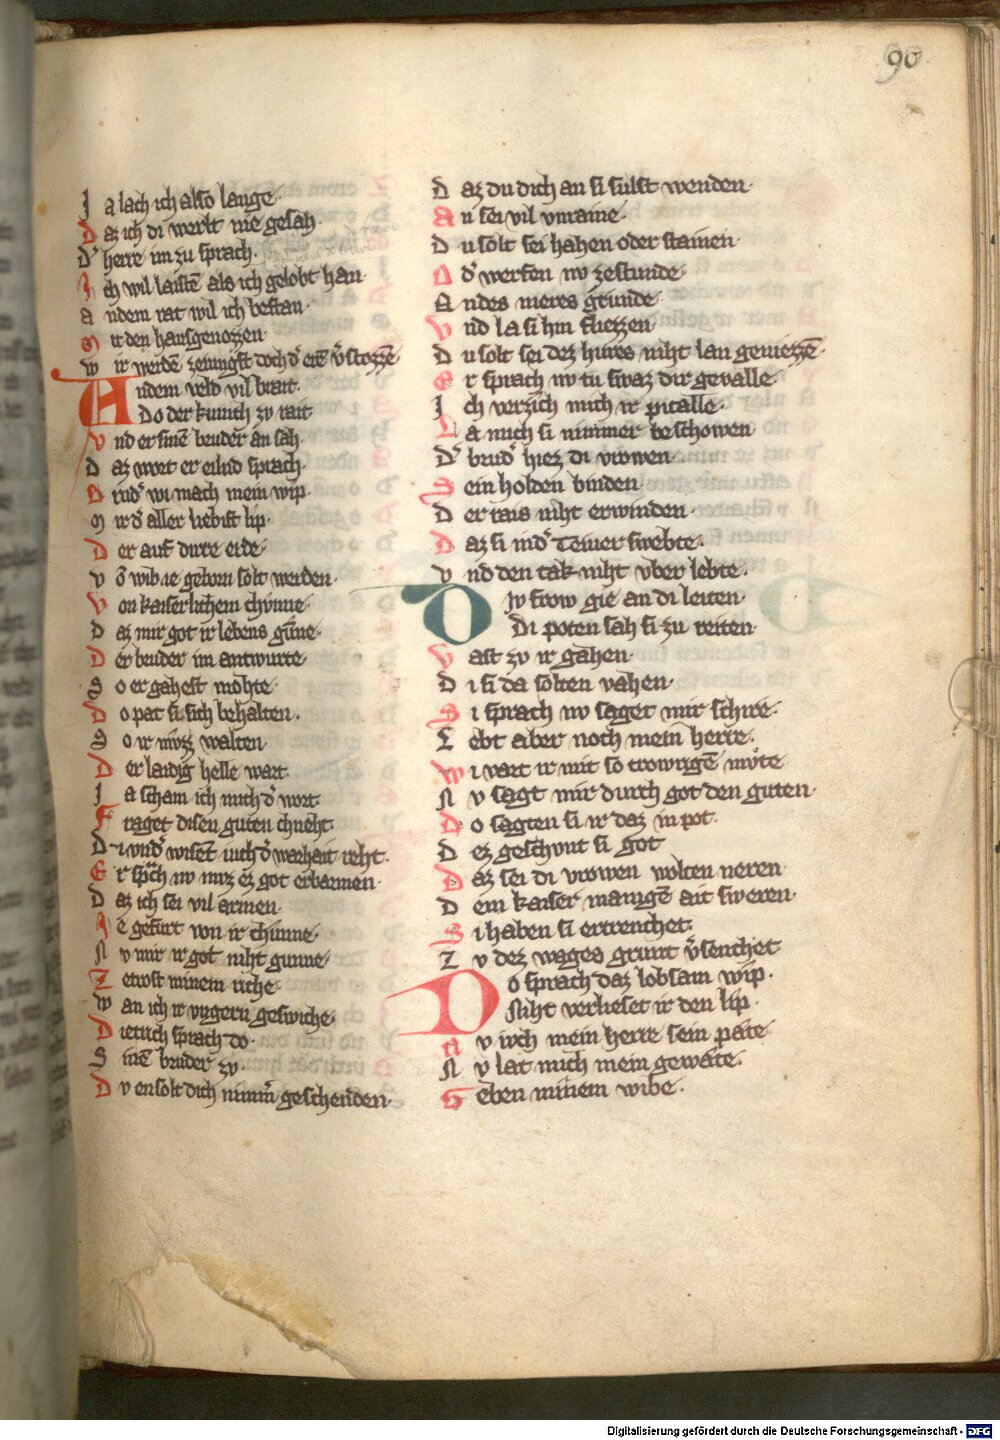 90
J a lach ich also lange·
D az ich di werlt nie gesah·
D' herre im zu sprach·
J ch wil laistē als ich gelobt han·
a ndem rat wil ich bestan·
M it den hausgenozzen
w ir werdē zeiungst doch d' erē v'stozzē
A ndem veld vil brait·
Do der kunich zv rait
V nd er sinē bruder an sah·
D az wort er eilnd sprach·
B rud' wi mach mein wip·
M ir d' aller liebist lip·
D er auf dirre erde·
v ō wib ie geborn solt werden·
V on kaiserlichem chvnne·
D az mir got ir lebens gūne·
D er bruder im antwurte
S o er gahest mohte·
D o pat si sich behalten·
S o ir mvzz walten·
D er laidig helle wart·
J a scham ich mich d' wort·
F raget disen guten chneht·
D i vnd' wisēt iuch d' warhait reht·
E r sprach nv mvz ez got erbarmen·
D az ich sei vil armen·
J e gefurt von ir chunne·
N v mir ir got niht gunne·
Z etrost minem riche·
W an ich ir vngern geswiche·
D ietrich sprach do·
S inē bruder zv·
D v ensolt dich nimm' geschenden·
D az du dich an si sulst wenden·
A n sei vil vnraine·
D u solt sei hahen oder stainen·
O d' werfen nv zestunde·
A n des meres grunde·
V nd la si hin fliezzen
D u solt sei dez hures niht lan geniezzē·
E r sprach nv tu swaz dir gevalle·
J ch verzich mich ir pitalle·
L a mich si nimmer beschowen
D' brud' hiez di vrowen·
S ein holden binden
D er rais niht erwinden·
D az si in d' Teuer swebte·
v nd den tak niht vber lebte·
D iv frow gie an di leiten·
Di poten sah si zu reiten·
V ast zv ir gahen·
D i si da solten vahen·
S i sprach nv saget mir schire·
L ebt aber noch mein herre·
W i vart ir mit so trowrigē mvte
N v sagt mir durch got den guten·
D o sagten si ir daz in pot·
D ez geschvnt si got
D az sei di vrowen wolten neren
D em kaiser manigē ait sweren·
S i haben si ertrenchet·
Z v dez wages grunt v'senchet
D o sprach daz lobsam wip·
Niht verlieset ir den lip·
N v ivch mein herre sein pate·
N v lat mich mein gewate·
G eben minem wibe·
Digitalisierung gefördert durch die Deutsche Forschungsgemeinschaft - DFG